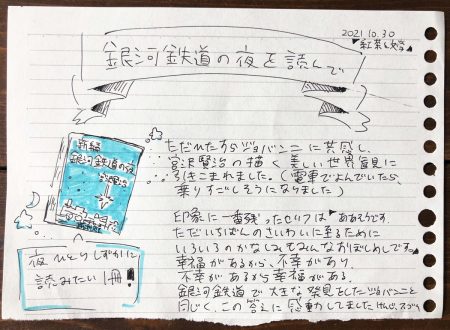 2021.10.30
紅茶と文学
銀河鉄道の夜を読んで
新編
銀河鉄道の夜
宮沢賢治
ただひたすらジョバンニに共感し、
宮沢賢治の描く美しい世界観に
引きこまれました。(電車でよんでいたら、
乗りすごしそうになりました)
印象に一番残ったセリフは"ああそうです。
ただいちばんのさいわいに至るために
いろいろのかなしみもみんなおぼしめしです。"
幸福があるから、不幸があり
不幸があるから幸福がある。
銀河鉄道で大きな発見をしたジョバンニと
同じく、この答えに感動してました
夜ひとりしずかに
読みたい1冊!